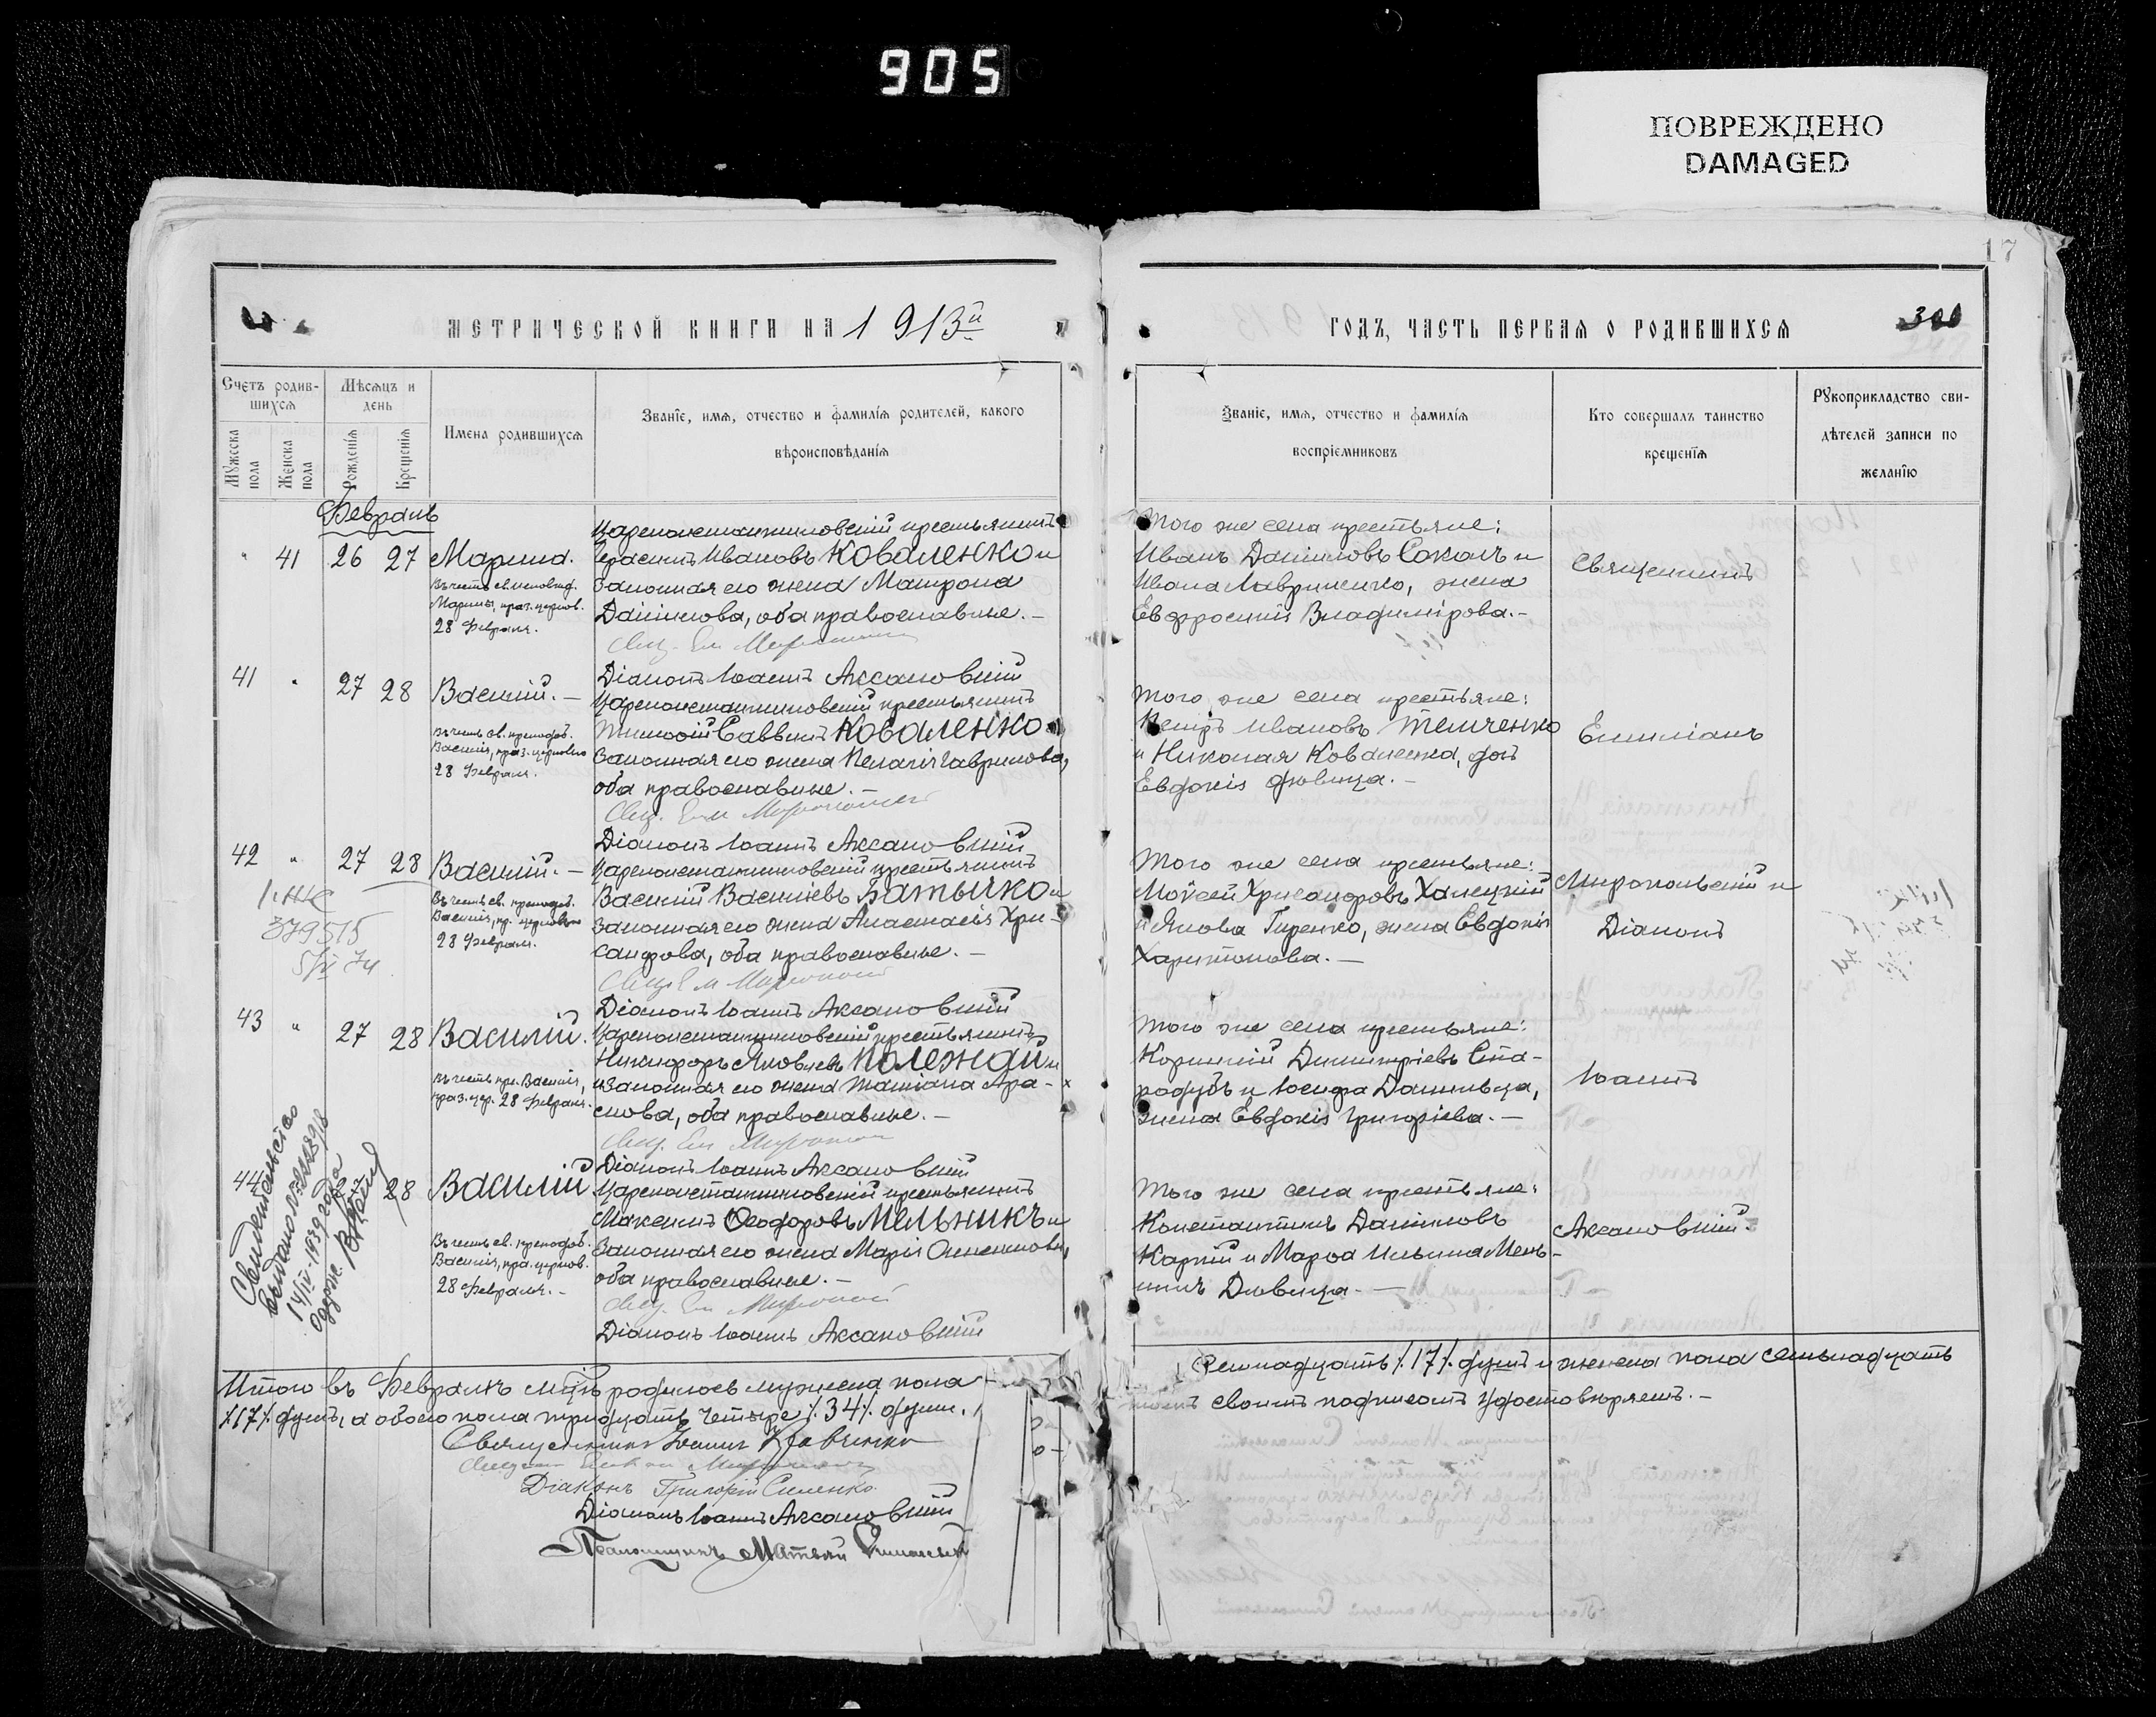 905
ПОВРЕЖДЕНО
DAMAGED
17
МЕТРИЧЕСКОЙ КНИГИ НА 1913й
Счетъ родив-
шихся
Мѣсяцъ и
день
Мужеска
пола
Женска
пола
Рожденія
Крещенія
Имена родившихся
Званіе, имя, отчество и фамилія родителей, какого
вѣроисповѣданія
Февраль
41 26 27 Марина.
Въ честь св.
Марины, праз. церков.
28 Февраля.
Цареконстантиновскій крестьянинъ
Герасимъ Ивановъ Коваленко и
Законная его жена Матрона
Даніилова, оба православные. —
Свящ. Ем
41 27 28 Василій. —
Въ честь св. преподоб.
Василія, праз. церковью
28 Февраля.
Діаконъ Іоаннъ Аксановскій
Цареконстантиновскій крестьянинъ
Тимофій Саввинъ Коваленко и
Законная его жена Пелагія Гаврилова,
оба православные. —
Свящ. Ем
42 27 28 Василій. —
I-ЖС
379515
5/IV 74
Въ честь св. преподоб.
Василія, пр. церковью
28 Февраля.
Діаконъ Іоаннъ Аксановскій
Цареконстантиновскій крестьянинъ
Василій Василіевъ Батычко и
Законная его жена Анастасія Хри-
санфова, оба православные. —
Свящ. Ем
43 27 28 Василій.
Въ честь пр. Василія,
праз. цер. 28 Февраля.
Діаконъ Іоаннъ Аксановскій
Цареконстантиновскій крестьянинъ
Никифоръ Яковлевъ Полежай и
Законная его жена Татіана
оба православные. —
Свящ. Ем
44 28 Василій
Свидетельство
выдано
14/IV-1939 года
Въ честь св. преподоб.
Василія, пра. церков.
28 Февраля. —
Діаконъ Іоаннъ Аксановскій
Цареконстантиновскій крестьянинъ
Максимъ Ѳеодоровъ Мельникъ и
Законная его жена Марія
оба православные. —
Свящ. Ем
Діаконъ Іоаннъ Аксановскій
Итого въ Февралѣ м-цѣ родилось мужеска пола
/.17/. душъ, а обоего пола тридцать четыре /.34/. души.
Священникъ Іоаннъ Кравченко
Діаконъ Григорій Силенко
Діаконъ Іоаннъ Аксановскій
Псаломщикъ Матвѣй
ГОДЪ, ЧАСТЬ ПЕРВАЯ О РОДИВШИХСЯ
300
Званіе, имя, отчество и фамилія
воспріемниковъ
Кто совершалъ таинство
крещенія
Рукоприкладство сви-
дѣтелей записи по
желанію
Того же села крестьяне:
Иванъ Даніиловъ Соколъ и
Ивана Лавриненко, жена
Евфросинія Владимірова. —
Того же села крестьяне:
Петръ Ивановъ Темченко
и Николая Коваленка, дочь
Евдокія дѣвица. —
Того же села крестьяне:
Моѵсей Хрисанфовъ Халецкій
и Якова Гиренко, жена Евдокія
Харитонова. —
Того же села крестьяне:
Корнилій Димитріевъ Ста-
родубъ и Іосифа Данильца,
жена Евдокія Григоріева. —
Того же села крестьяне:
Константинъ Даніиловъ
Карпій и Марѳа Ильина Мель-
никъ Дѣвица. —
Священникъ
Емиліанъ
Миропольскій и
Діаконъ
Іоаннъ
Аксановскій.
Семнадцать /.17/. душъ и женска пола семьнадцать
своимъ подписомъ удостовѣряемъ. —